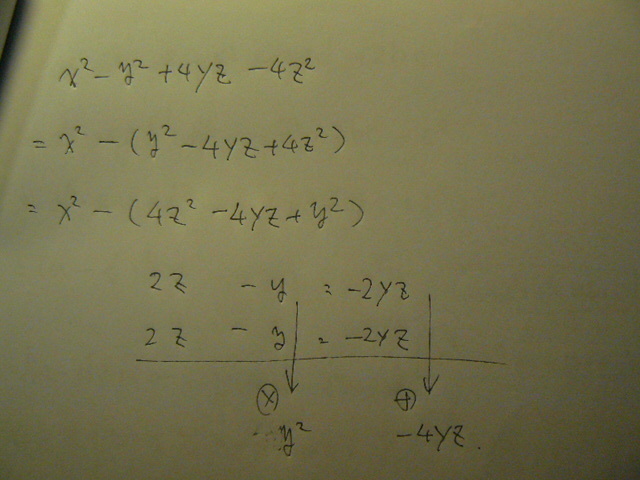 x² - y² + 4yz - 4z²
= x² - (y² - 4yz + 4z²)
= x² - (4z² - 4yz + y²)
2z - y = -2yz
2z - y = -2yz
⊗ ⊕
y² -4yz.